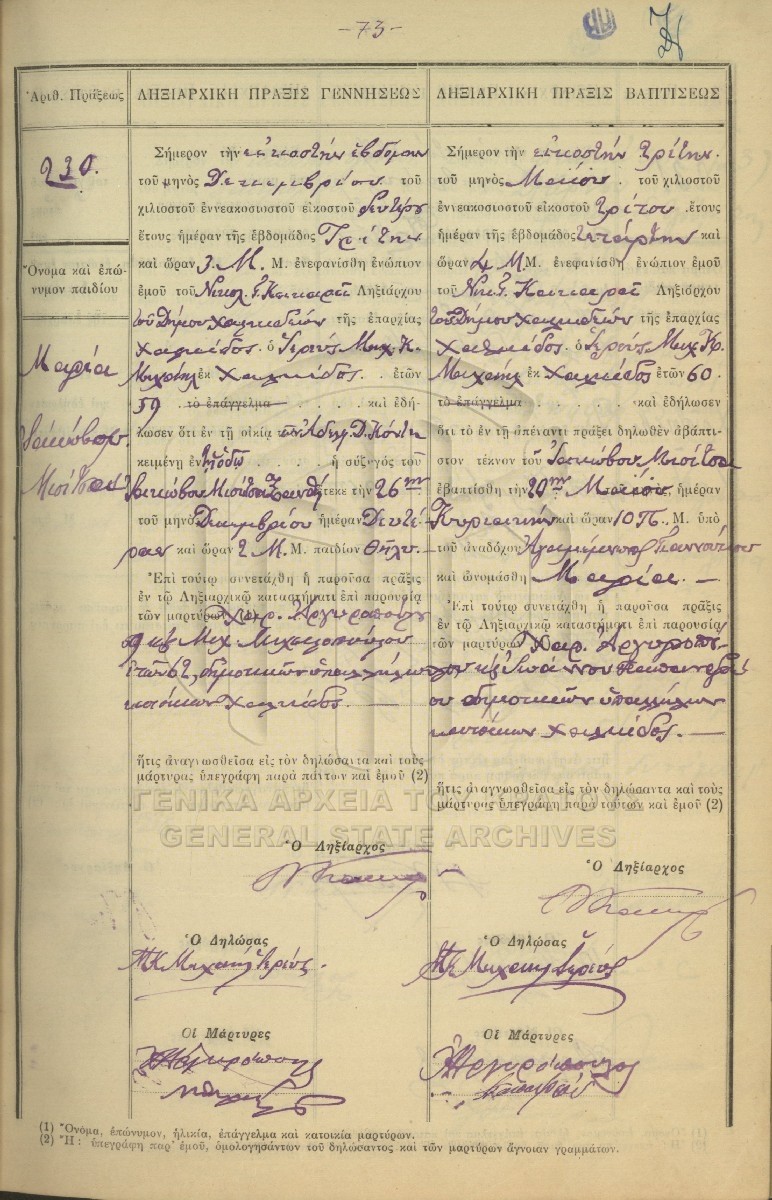 -73-
Ἀριθ. Πράξεως
230.
Ὄνομα καὶ ἐπώνυμον παιδίου
Μαρία
Ἰακώβου
Μισίτσα
ΛΗΞΙΑΡΧΙΚΗ ΠΡΑΞΙΣ ΓΕΝΝΗΣΕΩΣ
Σήμερον τὴν εἰκοστὴν ἑβδόμην
τοῦ μηνὸς Δεκεμβρίου τοῦ
χιλιοστοῦ ἐννεακοσιοστοῦ εἰκοστοῦ δευτέρου
ἔτους ἡμέραν τῆς ἑβδομάδος Τρίτην
καὶ ὥραν 3. Μ. Μ. ἐνεφανίσθη ἐνώπιον
ἐμοῦ τοῦ Νικολ. Γ. Ληξιάρχου
τοῦ Δήμου Χαλκιδέων τῆς ἐπαρχίας
Χαλκίδος. ὁ Ἱερεὺς Μιχ. Κ.
Μιχαὴλ ἐκ Χαλκίδος. ἐτῶν
59 τὸ ἐπάγγελμα καὶ ἐδή-
κωσεν ὅτι ἐν τῇ οἰκίᾳ
κειμένῃ ἐν ὁδῷ ἡ σύζυγός τοῦ
Ἰακώβου Μισίτσα ἔτεκε τὴν 26ην
τοῦ μηνὸς Δεκεμβρίου ἡμέραν Δευτέ-
ραν καὶ ὥραν 2 Μ. Μ. παιδίον θῆλυ.
Ἐπὶ τούτῳ συνετάχθη ἡ παροῦσα πρᾶξις
ἐν τῷ Ληξιαρχικῷ καταστήματι ἐπὶ παρουσίᾳ
τῶν μαρτύρων (1) Χαρ. Ἀργυροπούλου
καὶ Μιχ. Μιχαλοπούλου
ἐτῶν 62, δημοτικῶν ὑπαλλήλων
κατοίκων Χαλκίδος.
ἥτις ἀναγνωσθεῖσα εἰς τὸν δηλώσαντα καὶ τοὺς
μάρτυρας ὑπεγράφη παρὰ πάντων καὶ ἐμοῦ (2)
Ὁ Ληξίαρχος
Ὁ Δηλώσας
Μ Κ Μιχαὴλ Ἱερεύς.
Οἱ Μάρτυρες
ΛΗΞΙΑΡΧΙΚΗ ΠΡΑΞΙΣ ΒΑΠΤΙΣΕΩΣ
Σήμερον τὴν εἰκοστὴν τρίτην.
τοῦ μηνὸς Μαΐου. τοῦ χιλιοστοῦ
ἐννεακοσιοστοῦ εἰκοστοῦ τρίτου. ἔτους
ἡμέραν τῆς ἑβδομάδος Τετάρτην καὶ
ὥραν 4 Μ. Μ. ἐνεφανίσθη ἐνώπιον ἐμοῦ
τοῦ Νικ. Γ. Ληξιάρχου
τοῦ Δήμου Χαλκιδέων τῆς ἐπαρχίας
Χαλκίδος. ὁ Ἱερεὺς Μιχ. Κ.
Μιχαὴλ ἐκ Χαλκίδος ἐτῶν 60.
τὸ ἐπάγγελμα καὶ ἐδήλωσεν
ὅτι τὸ ἐν τῇ ἀπέναντι πράξει δηλωθὲν ἀβάπτι-
στον τέκνον τοῦ Ἰακώβου Μισίτσα
ἐβαπτίσθη τὴν 20ην Μαΐου, ἡμέραν
Κυριακὴν καὶ ὥραν 10 Π. Μ. ὑπὸ
τοῦ ἀναδόχου Ἀγαμέμνονος
καὶ ὠνομάσθη Μαρία.
Ἐπὶ τούτῳ συνετάχθη ἡ παροῦσα πρᾶξις
ἐν τῷ Ληξιαρχικῷ καταστήματι ἐπὶ παρουσίᾳ
τῶν μαρτύρων Χαρ. Ἀργυροπού-
λου καὶ Ἰωάννου
δημοτικῶν ὑπαλλήλων
κατοίκων Χαλκίδος.
ἥτις ἀναγνωσθεῖσα εἰς τὸν δηλώσαντα καὶ τοὺς
μάρτυρας ὑπεγράφη παρὰ τούτων καὶ ἐμοῦ (2)
Ὁ Ληξίαρχος
Ὁ Δηλώσας
Μ Κ Μιχαὴλ Ἱερεύς
Οἱ Μάρτυρες
Χ Ἀργυρόπουλος
ΓΕΝΙΚΑ ΑΡΧΕΙΑ ΤΟΥ ΚΡΑΤΟΥΣ
GENERAL STATE ARCHIVES
(1) Ὄνομα, ἐπώνυμον, ἡλικία, ἐπάγγελμα καὶ κατοικία μαρτύρων.
(2) Ἢ: ὑπεγράφη παρ' ἐμοῦ, ὁμολογησάντων τοῦ δηλώσαντος καὶ τῶν μαρτύρων ἄγνοιαν γραμμάτων.